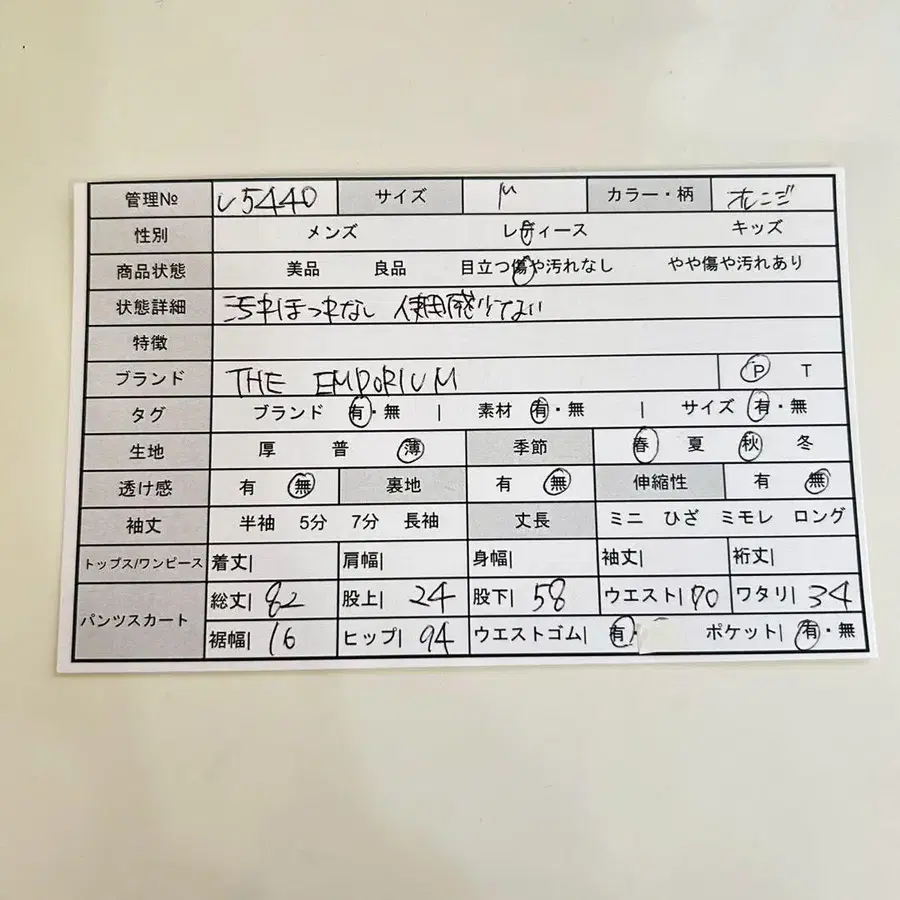 管理№ レ5440 サイズ M カラー・柄 オレンジ
性別 メンズ レディース キッズ
商品状態 美品 良品 目立つ傷や汚れなし やや傷や汚れあり
状態詳細 汚れほつれなし 使用感少ない
特徴
ブランド THE EMPORIUM P T
タグ ブランド 有・無 | 素材 有・無 | サイズ 有・無
生地 厚 普 薄 季節 春 夏 秋 冬
透け感 有 無 裏地 有 無 伸縮性 有 無
袖丈 半袖 5分 7分 長袖 丈長 ミニ ひざ ミモレ ロング
トップス/ワンピース 着丈| 肩幅| 身幅| 袖丈| 裄丈|
パンツスカート 総丈| 82 股上| 24 股下| 58 ウエスト| 70 ワタリ| 34
裾幅| 16 ヒップ| 94 ウエストゴム| 有・ ポケット| 有・無